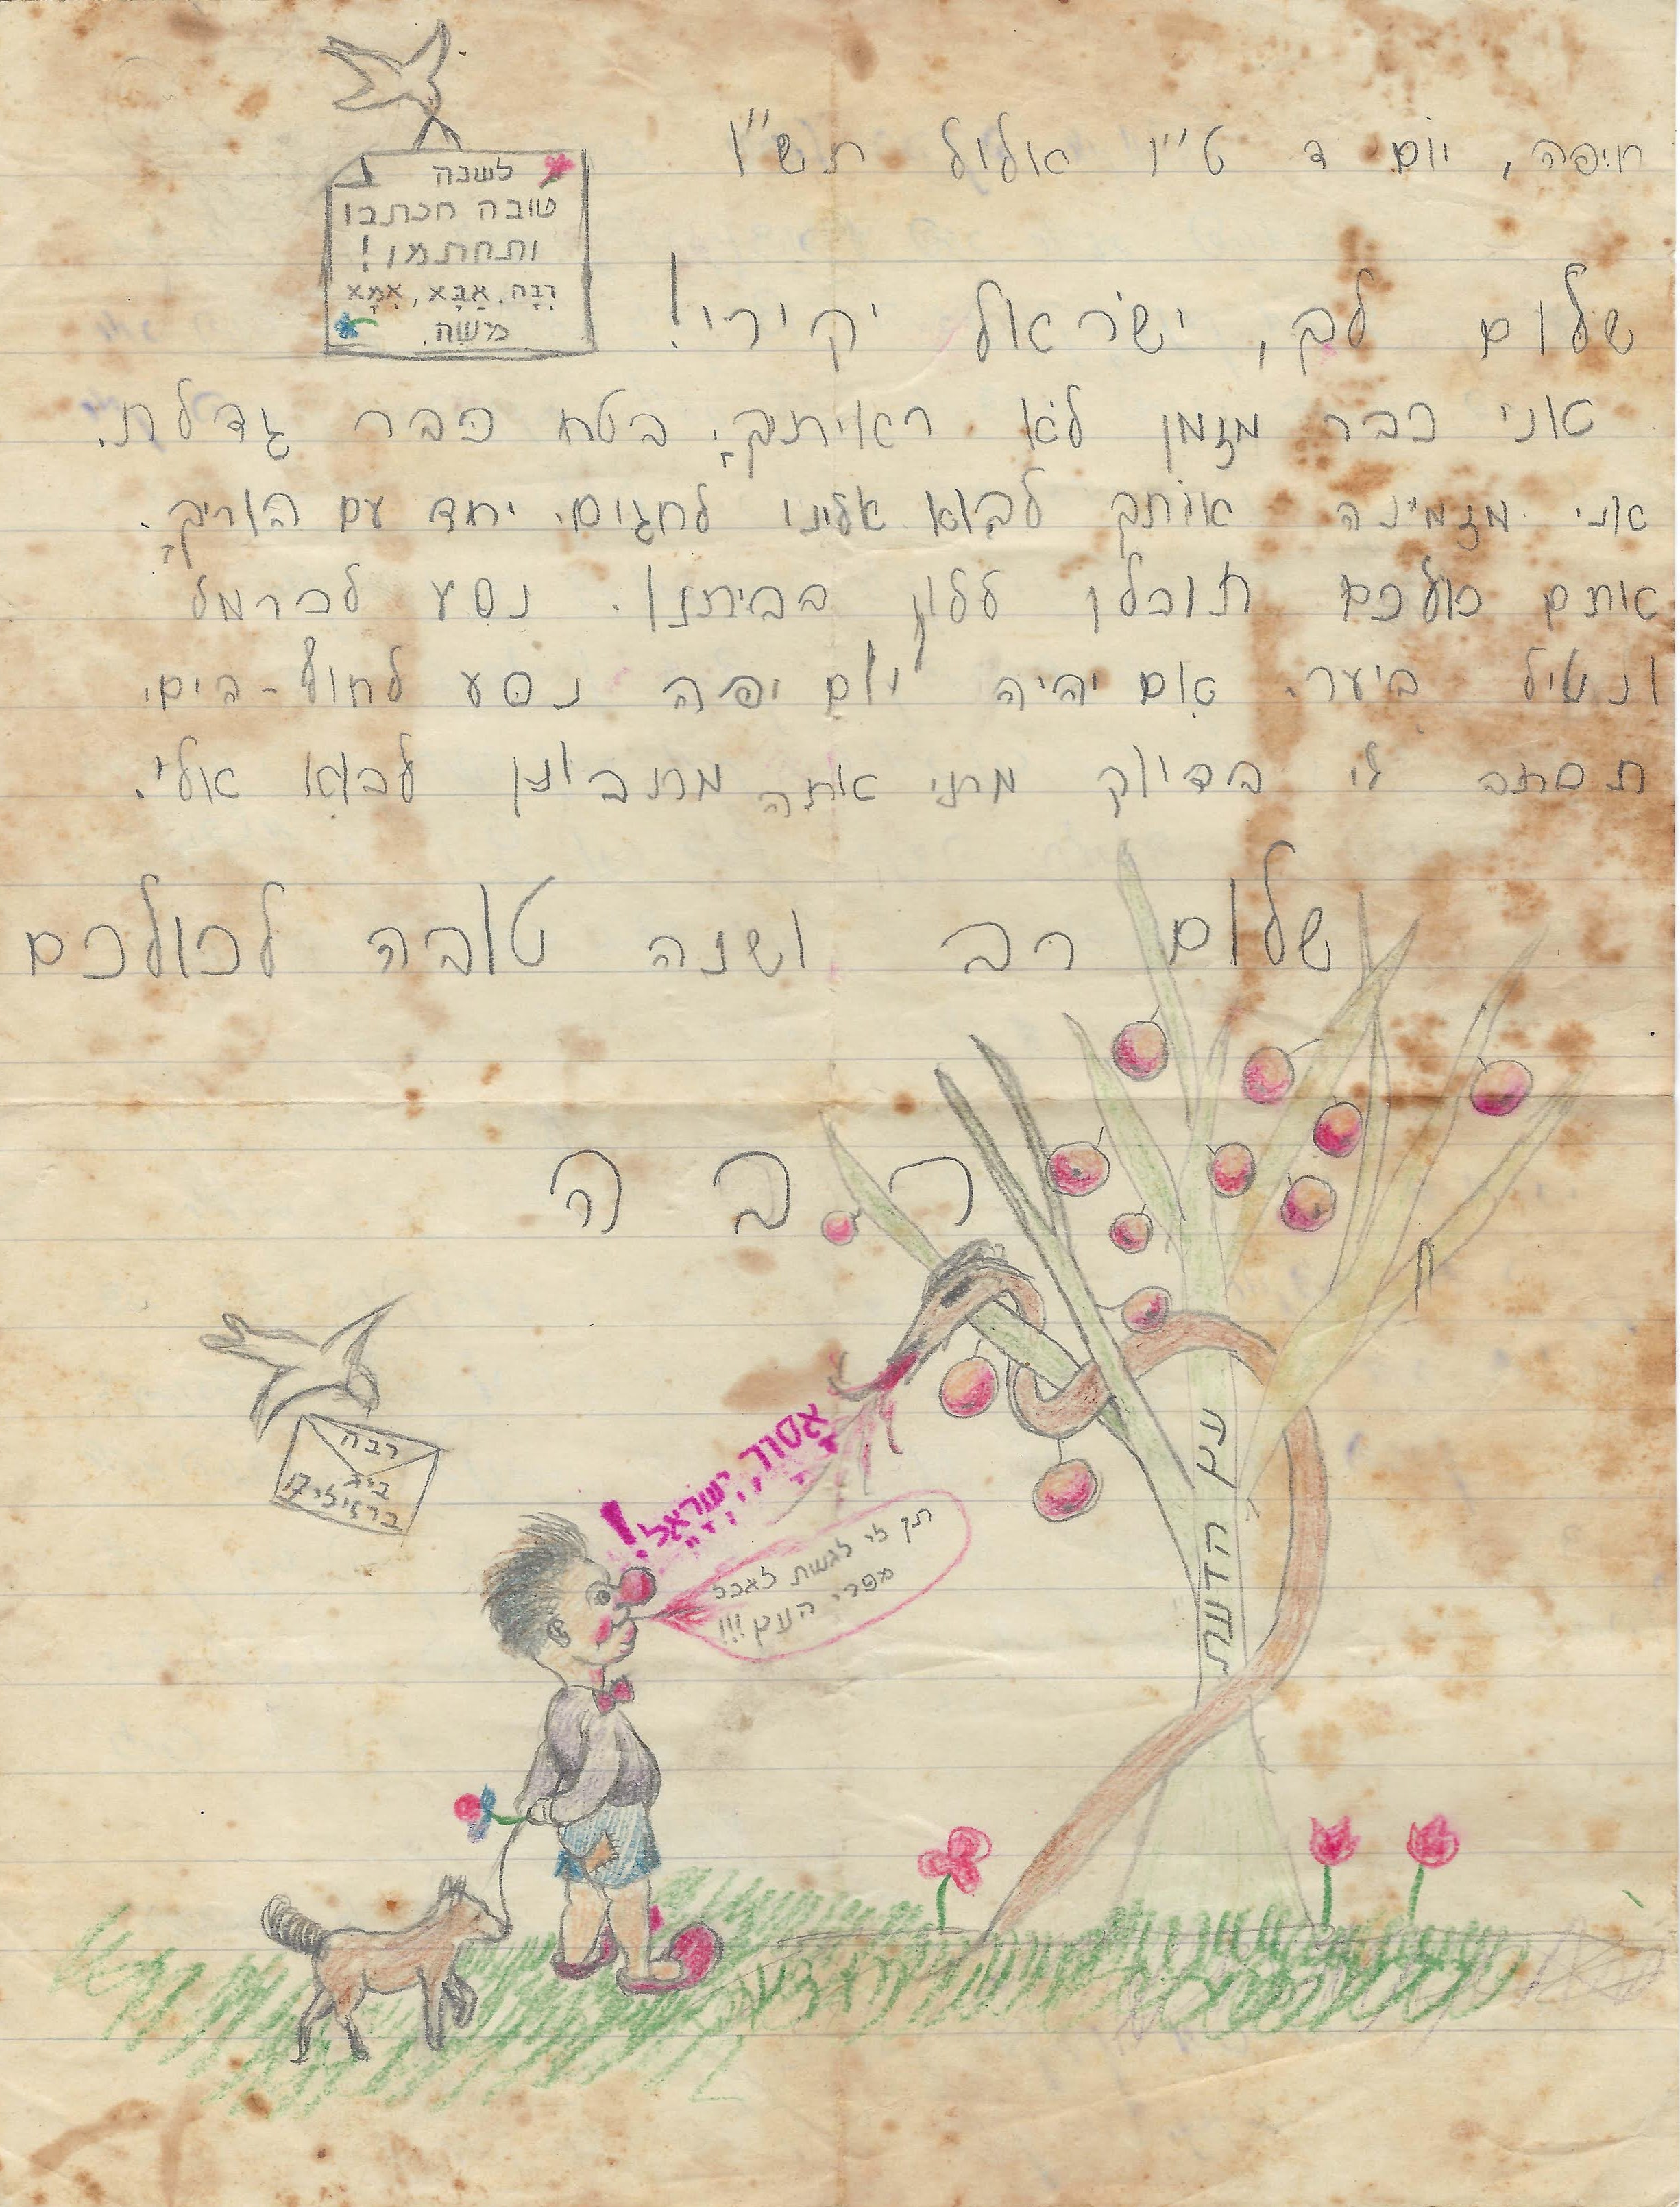 חיפה, יום ד ט״ו אלול תש״ו
לשנה
טובה תכתבו
ותחתמו!
רִבָה, אַבָּא, אִמָּא
משה.
שלום לך, ישראל יקירי!
אני כבר מזמן לא ראיתיךָ, בטח כבר גדלת.
אני מזמינה אותך לבוא אלינו לחגים. יחד עם הוריךָ.
אתם כולכם תוכלו ללון בביתנו. נסע לכרמל
ונטיל ביער. אם יהיה יום יפה נסע לחוף-הים.
תכתב לי בדיוק מתי אתה מתכונן לבוא אלי.
שלום רב ושנה טובה לכולכם
רבה
רבה
ביג
ברזילי 17
אָסוּר, יִשְׂרָאֵל!
תן לי לגשת לאכל
מפרי העץ!!!
עץ הדעת